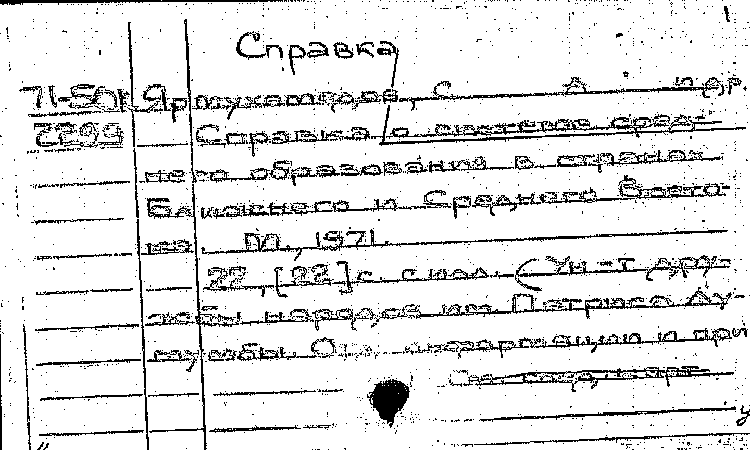 1
Справка
71-50к Ярмухамедов, С. А. и др.
2299 Справка о системе сред-
него образования в странах
Ближнего и Среднего Восто-
ка. М., 1971.
22, [22] с. с ил. (Ун-т дру-
жбы народов им. Патриса Лу-
мумбы. Отд. информации и при
См. след. карт.